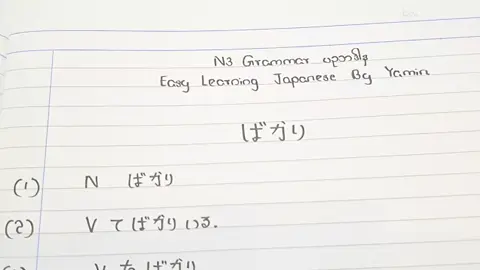 N3 Grammar
Easy Learning Japanese By Yamin
ばかり
(1) N ばかり
(2) V てばかりいる.
V たばかり